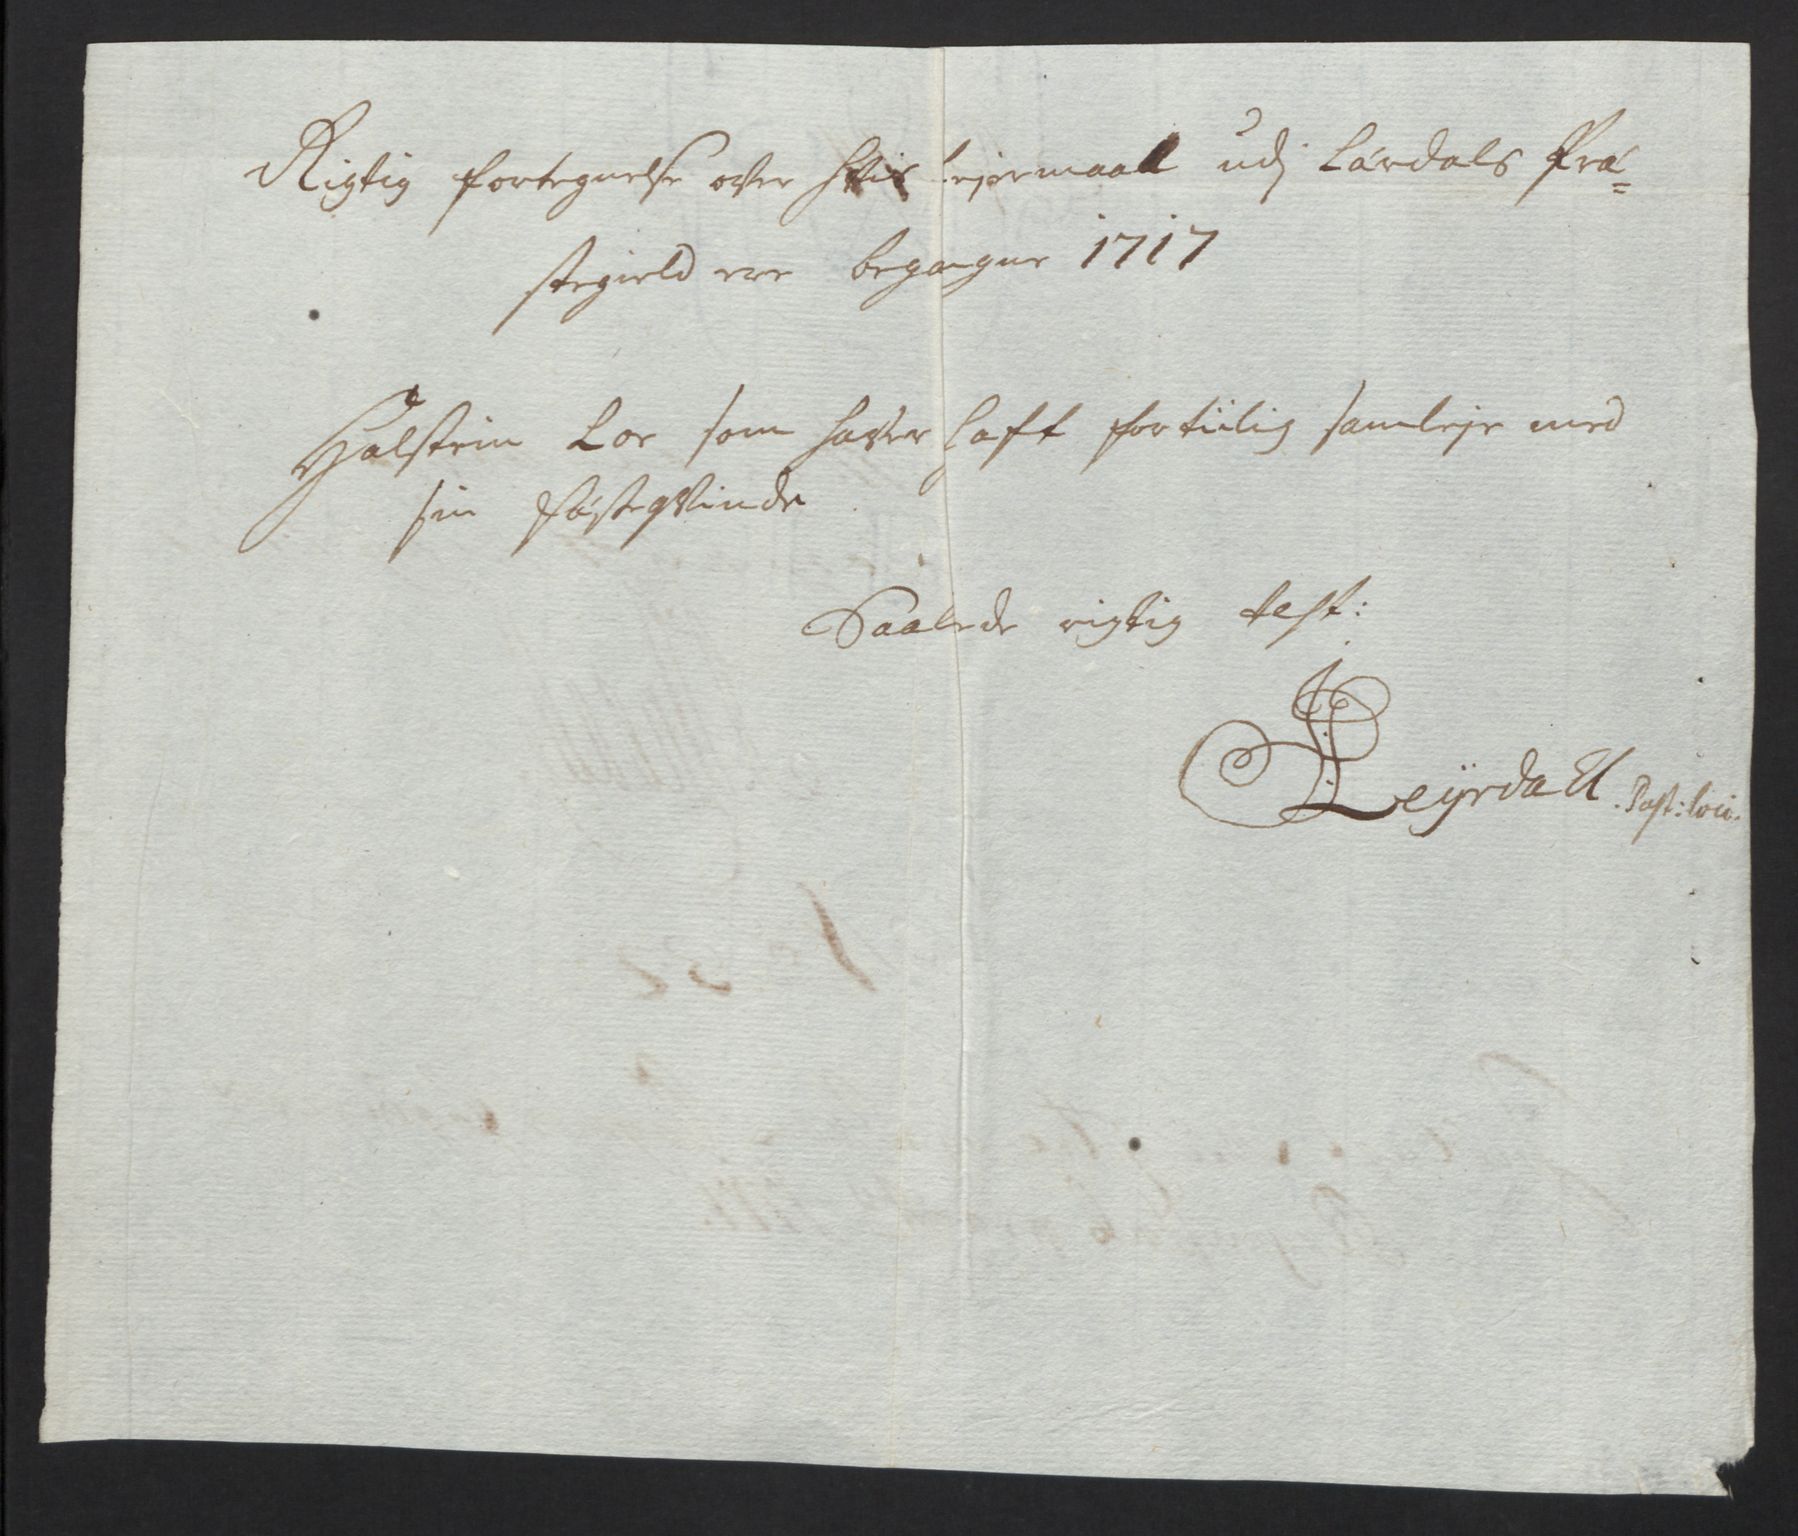 Rigtig fortegnelse over hvis leyermaal udj Lárdals Præ=
stegield ere begangne 1717
Halstein Loe som haver haft fortiilig samleje med
sin fæsteqvinde
Saalede rigtig test:
Leÿrdall. Past: loci.